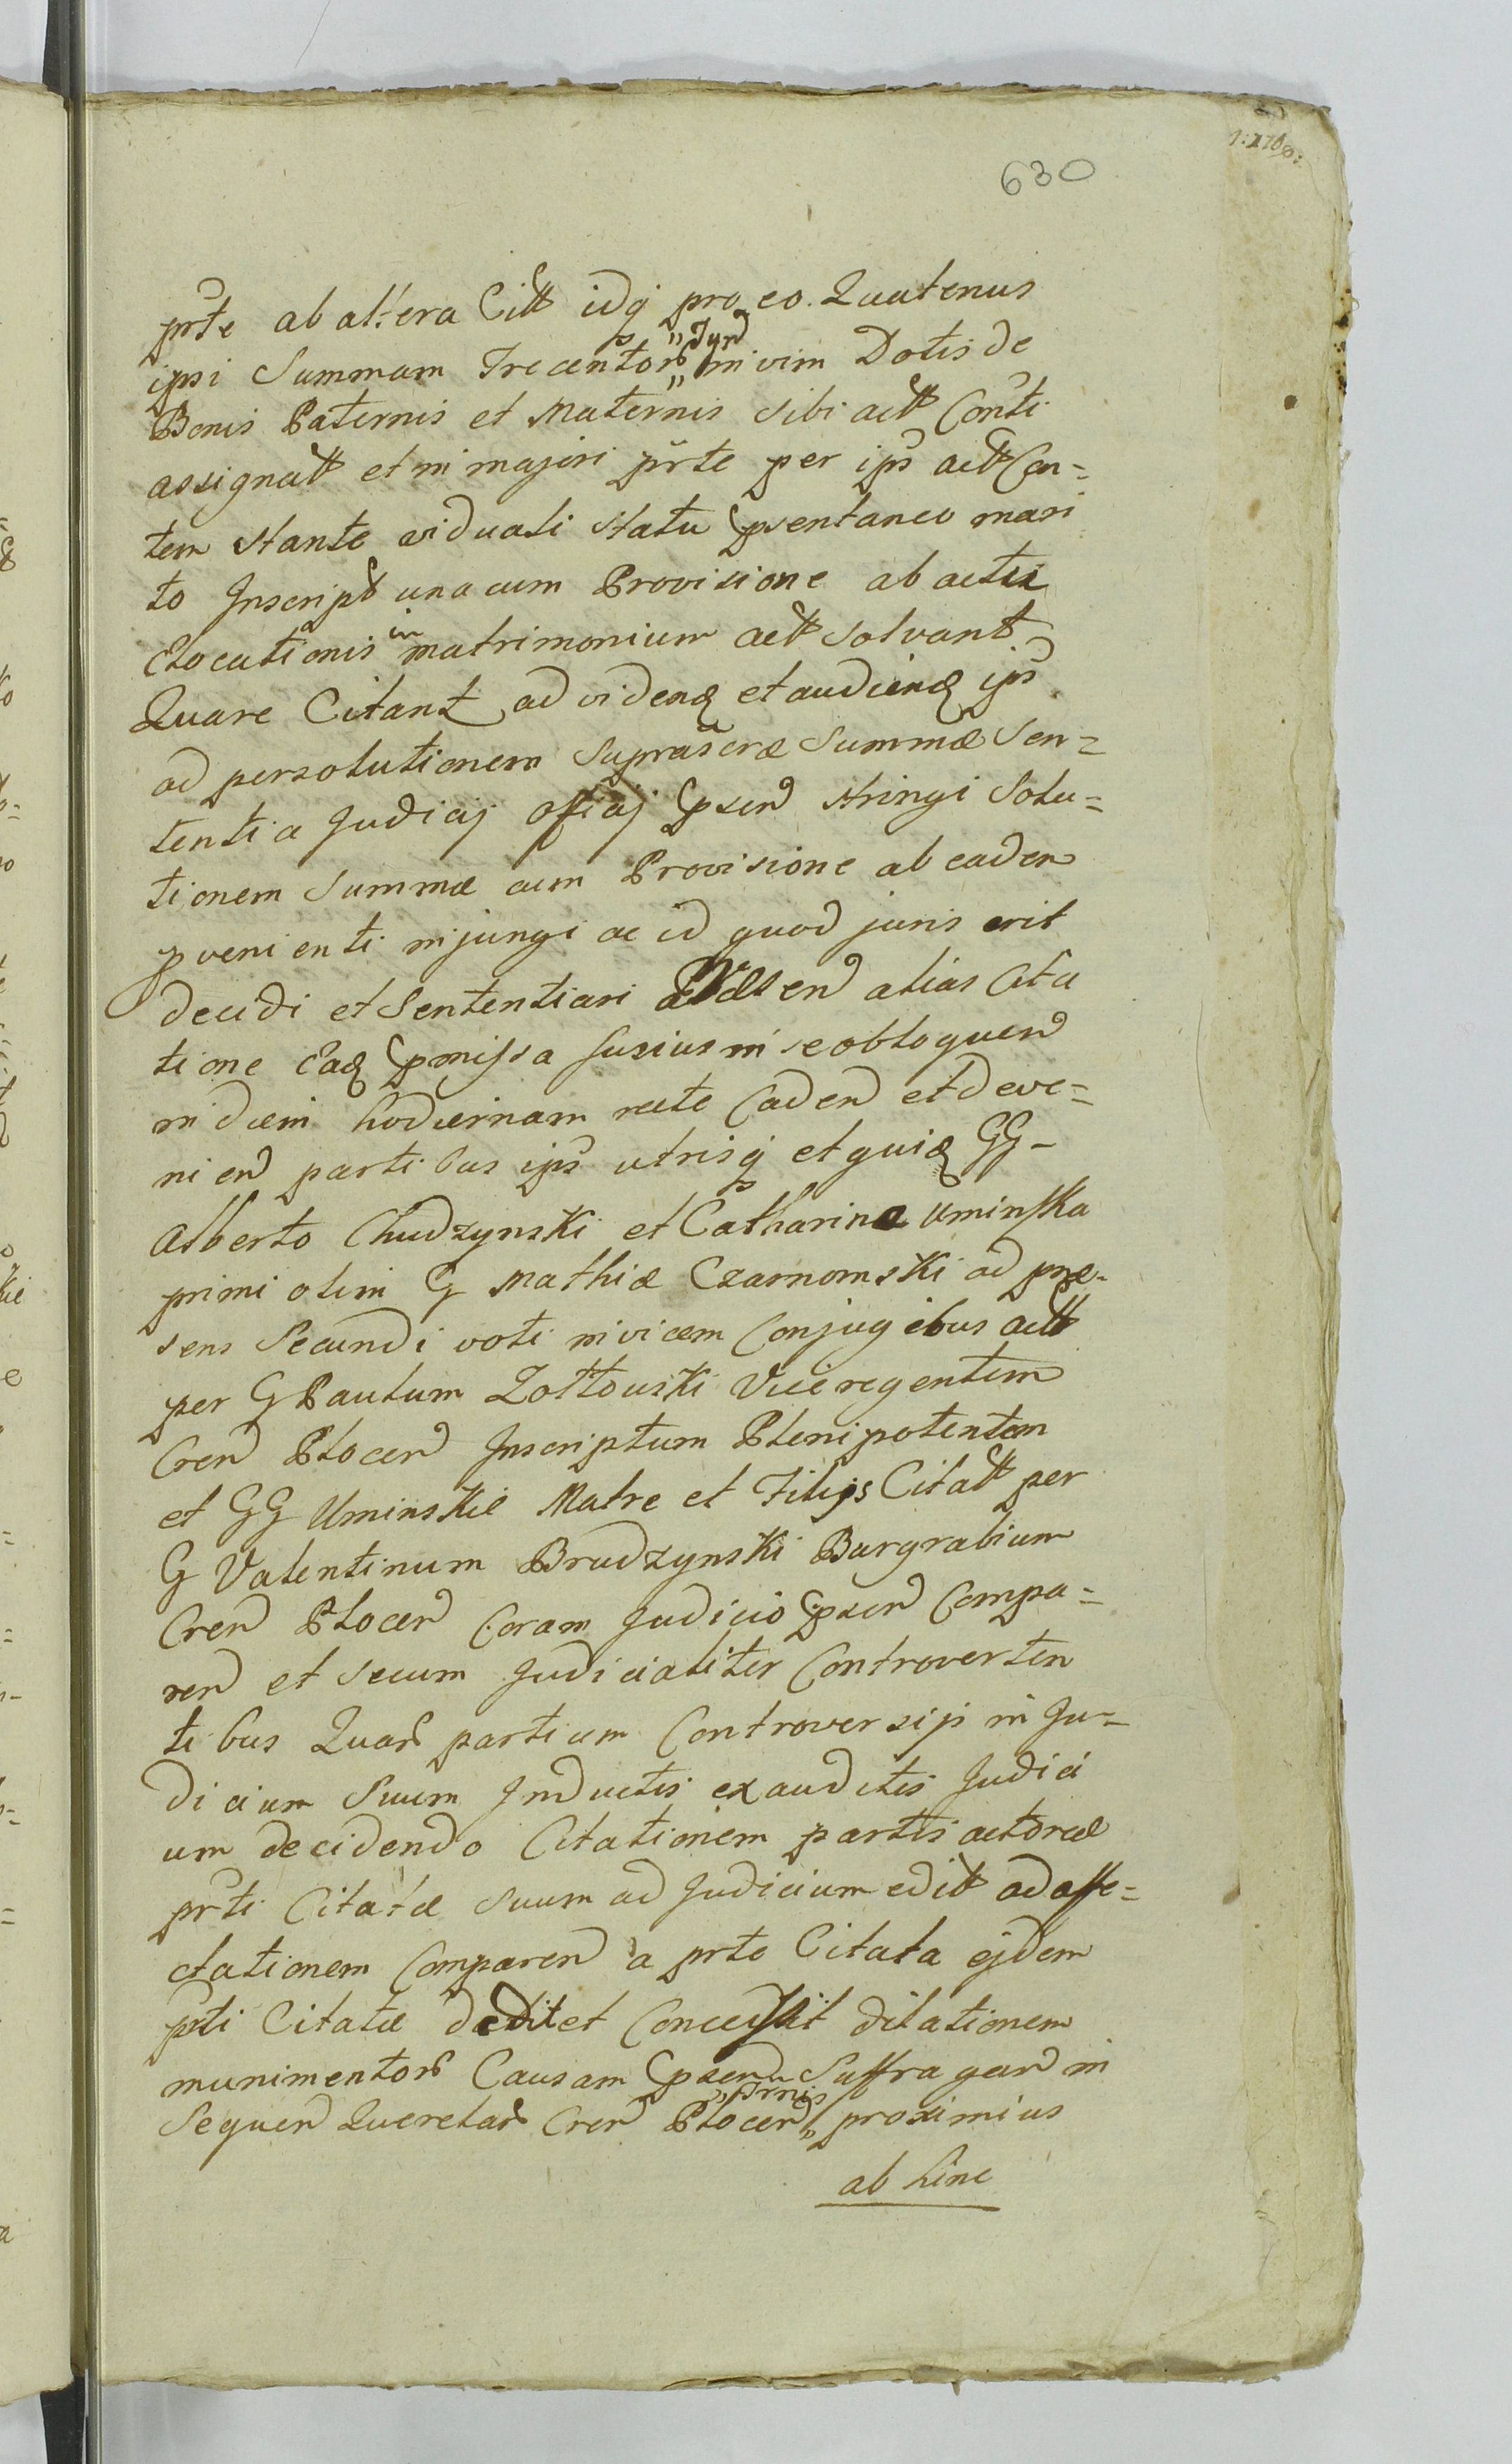 630
prte ab altera Citt idq pro eo Quatenus
ipsi Summam Trecentor "Tyn" in vim Dotis de
Bonis Paternis et Maternis sibi actt Conti
assignatt et in majori prte per ips actt Con=
tem stante viduali statu psentaneo mari
to Inscript una cum Provisione ab actu
Elocationis in matrimonium actt solvant
Quare Citant ad videndq et audiendq ips
ad persolutionem suprascrae Summae Sen=
tentia Judicij officij psen stringi Solu=
tionem Summae cum Provisione ab eaden
pvenienti injungi ac id quod juris erit
decidi et Sententiari alias Cita
tione Eaq pmissa fusius in se obloquen
in diem hodiernam recte Caden et deve=
nien partibus ips utrisq et quiq GG
Alberto Chudzynski et Catharina Uminska
primi olim G Mathiae Czarnomski ad prae-
sens Secundi voti invicem Conjugibus actt
per G Paulum Zołtowski Viceregentem
Cren Plocen Inscriptum Plenipotentem
et GG Uminskie Matre et Filijs Citatt per
G Valentinum Brudzynski Burgrabium
Cren Plocen Coram Judicio psen Compa=
ren et secum Judicialiter Controverten
tibus Quar partium Controversijs in Ju=
dicium Suum Inductis exauditis Judici
um decidendo Citationem partis actoreae
prti Citatae suum ad Judicium editt ad affe=
ctationem Comparen a prte Citata ejdem
prti Citatae dedit et Concessit dilationem
munimentor Causam psen Suffragan in
Sequen Querelar Cren Plocen "Trnis" proximius
ab hinc